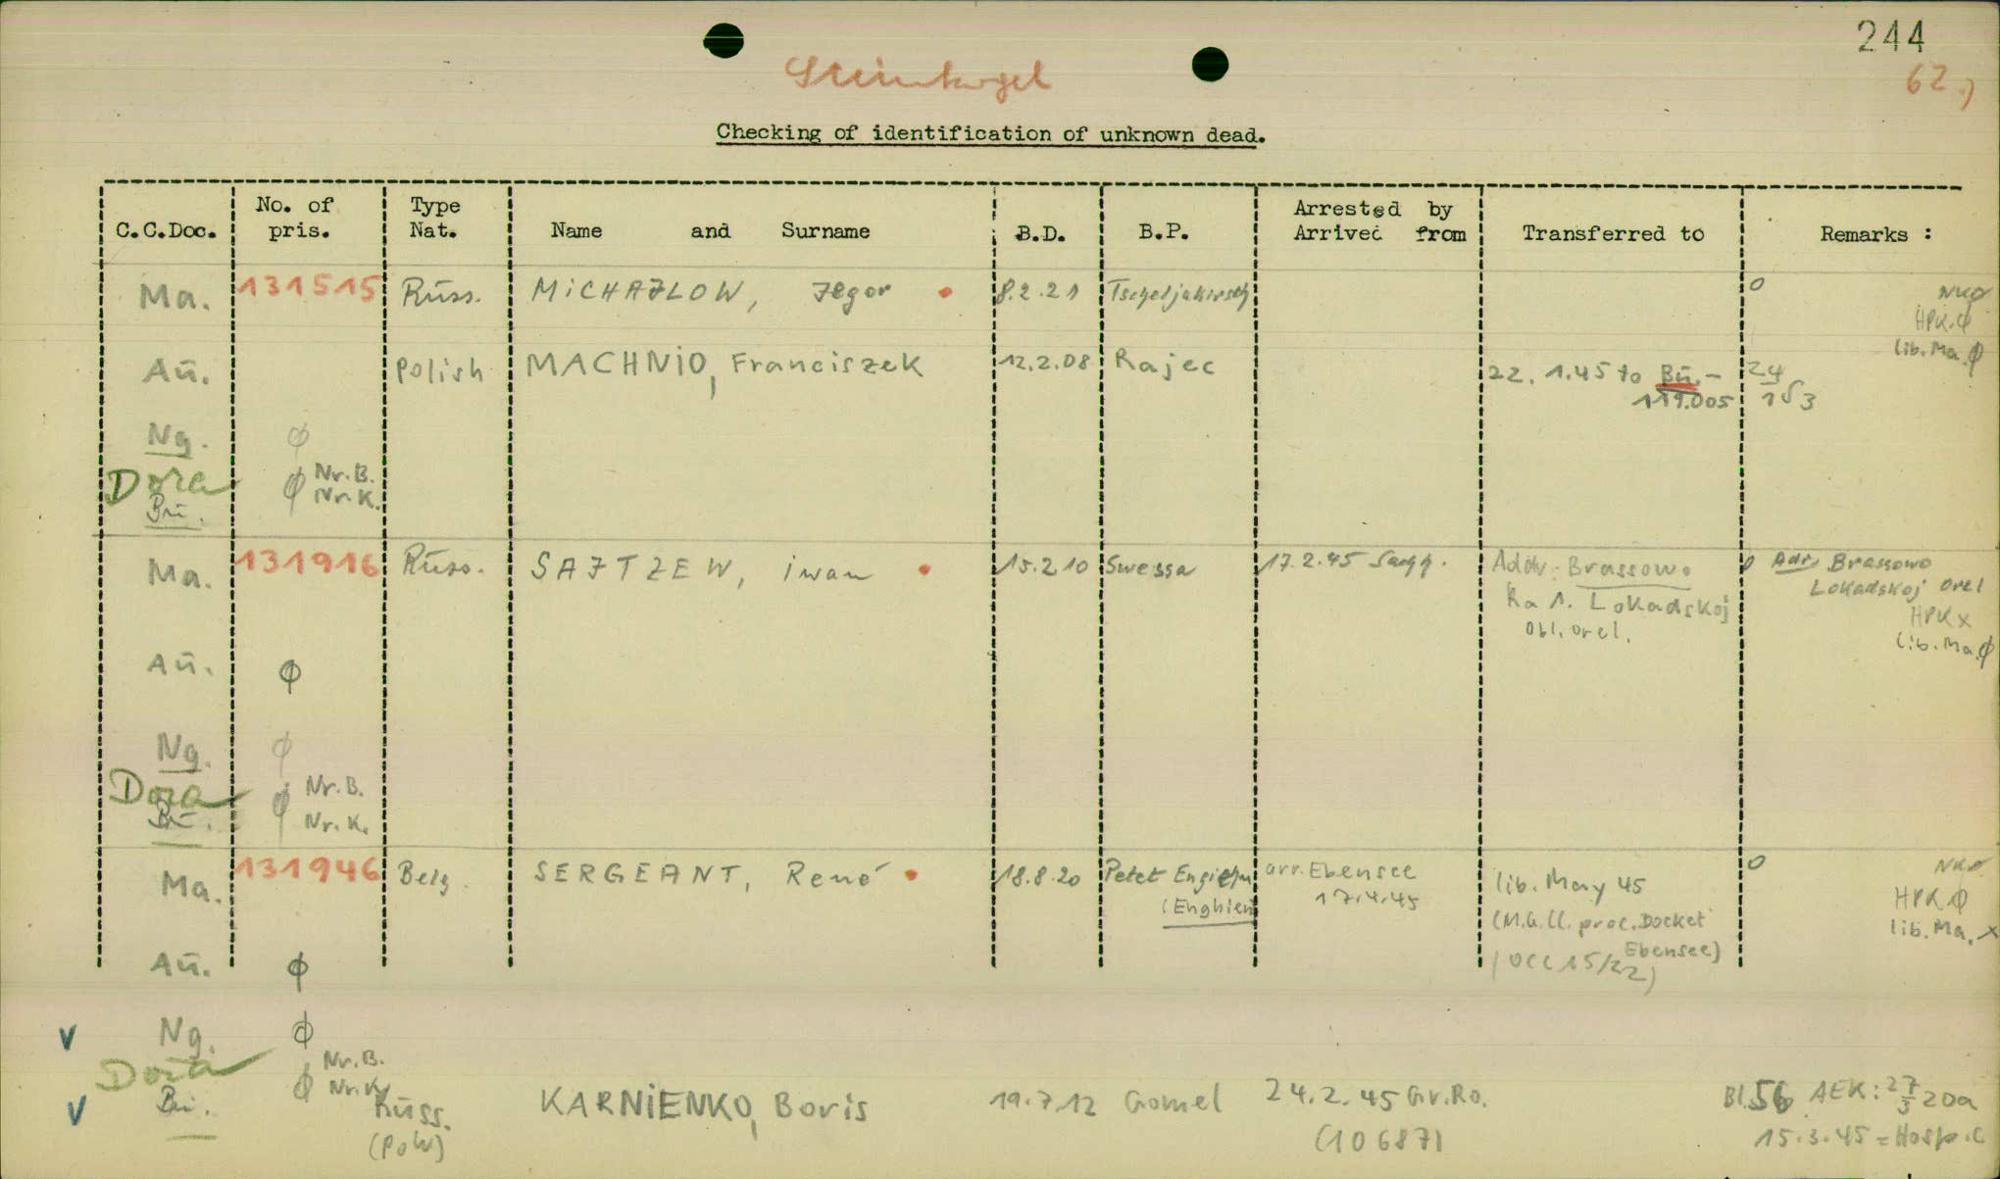 244
Steinkogel
62.)
Checking of identification of unknown dead.
C.C.Doc. No. of pris. Type Nat. Name and Surname B.D. B.P. Arrested by Arrived from Transferred to Remarks :
Ma. 131515 Russ. MICHAJLOW, Jegor 8.2.21 0
HPK.φ
lib.Ma.φ
Aū. Polish MACHNIO, Franciszek 12.2.08 Rajec 22.1.45 to Bū.-
119.005
Ng. φ
Dora φ Nr.B.
Bū. Nr.K.
Ma. 131916 Russ. SAJTZEW, iwan 15.2.10 Swessa 17.2.45 Addr: Brassowo 0 Adr. Brassowo
Ra 1. Lokadskoj Lokadskoj Orel
Obl. orel. HPKx
lib.Ma.φ
Aū. φ
Ng. φ
Dora φ Nr.B.
Bū. Nr.K.
Ma. 131946 Belg. SERGEANT, René 18.8.20 Petet Engiehn arr. Ebensee lib. May 45 0
(Enghien) 17.4.45 HPKφ
(M.G.Ct. proc. Docket lib.Ma.x
Ebensee)
(OCC 15/22)
Aū. φ
V Ng. φ
Dora φ Nr.B.
V Bū. Nr.K.
Russ. KARNIENKO, Boris 19.7.12 Gomel 24.2.45 Gr.Ro. Bl.56 AEK: 27/3 20a
(PoW) (10687) 15.3.45 = Hosp.C